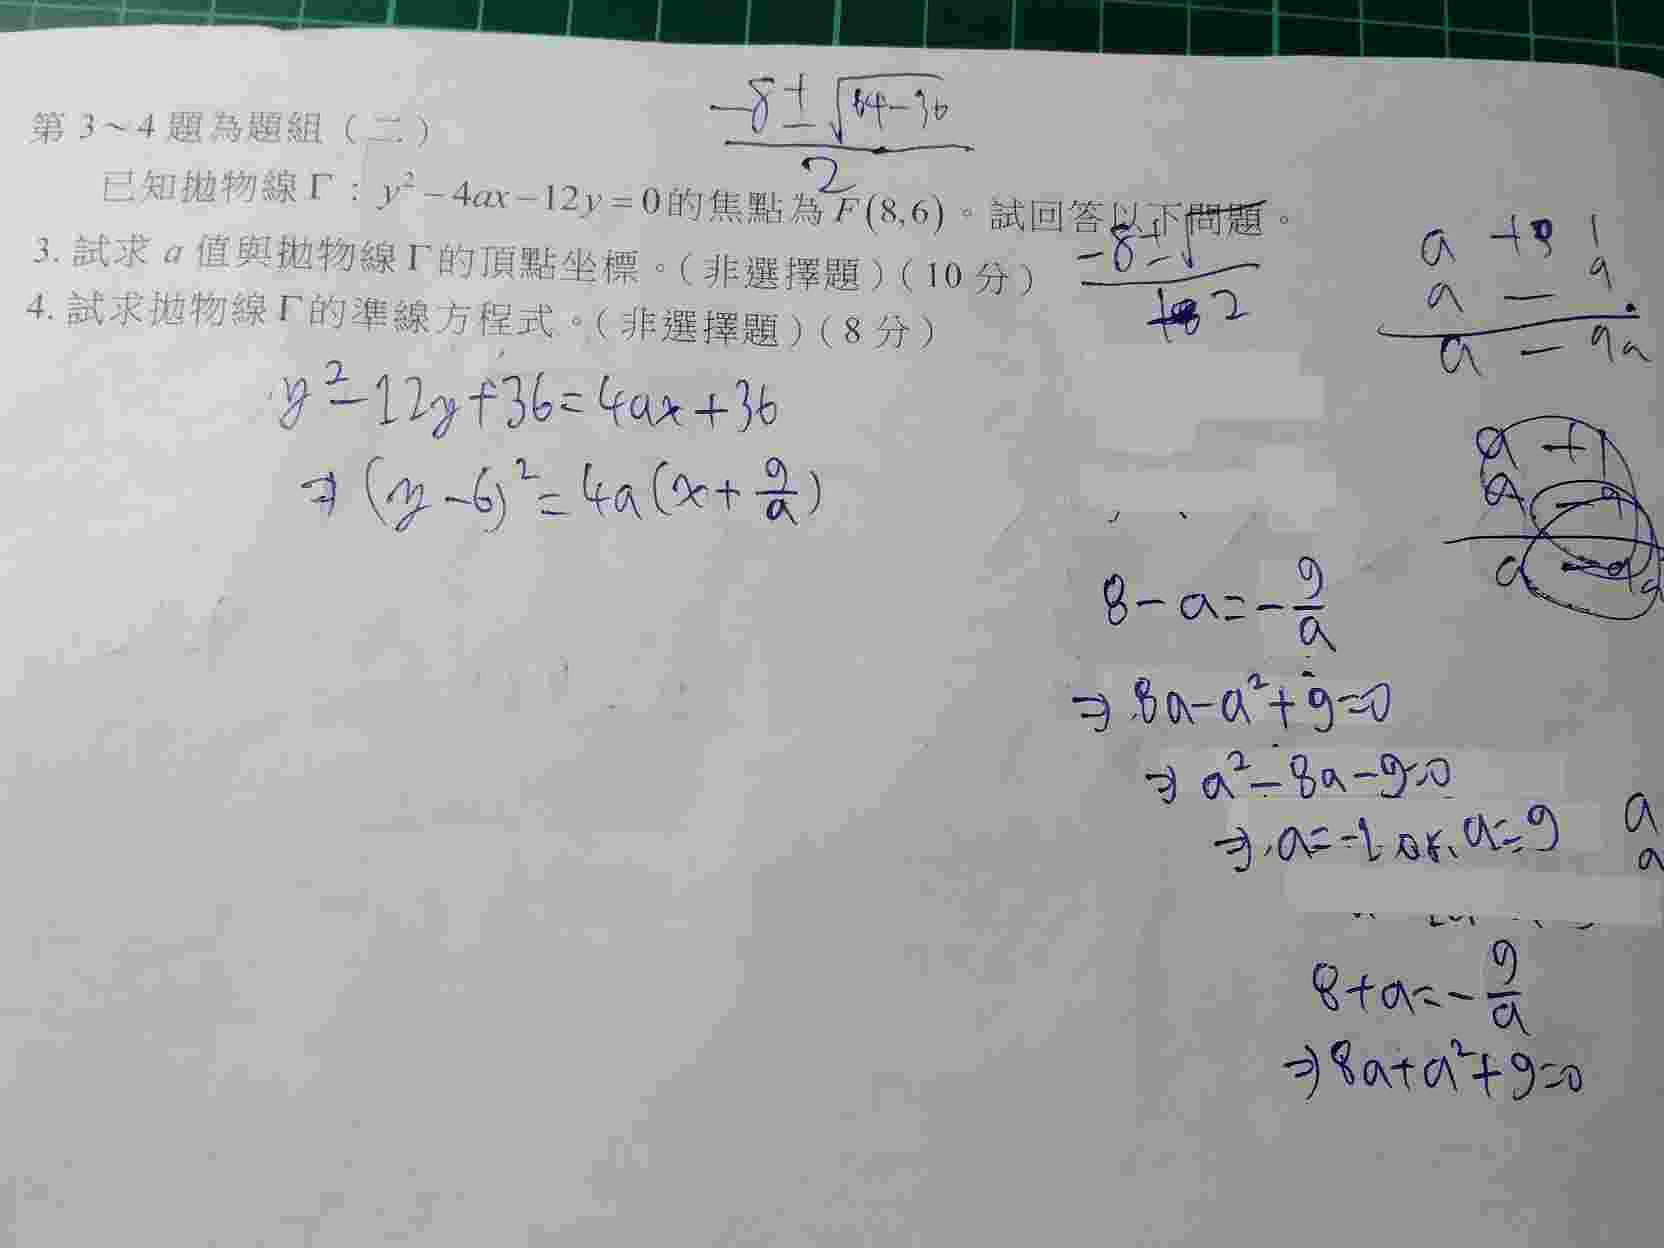 第 3～4 題為題組（二）
已知拋物線Γ：y²－4ax－12y＝0的焦點為F(8,6)。試回答以下問題。
3. 試求 a 值與拋物線Γ的頂點坐標。（非選擇題）（10 分）
4. 試求拋物線Γ的準線方程式。（非選擇題）（8 分）
-8±√64-36
2
-8±√
2
y²-12y+36=4ax+36
⇒(y-6)²=4a(x+9/a)
a +9 1
a - 9
a - 9a
a +1
a -9
a -9a
8-a=-9/a
⇒8a-a²+9=0
⇒a²-8a-9=0
⇒a=-1 or a=9
a
a
8+a=-9/a
⇒8a+a²+9=0